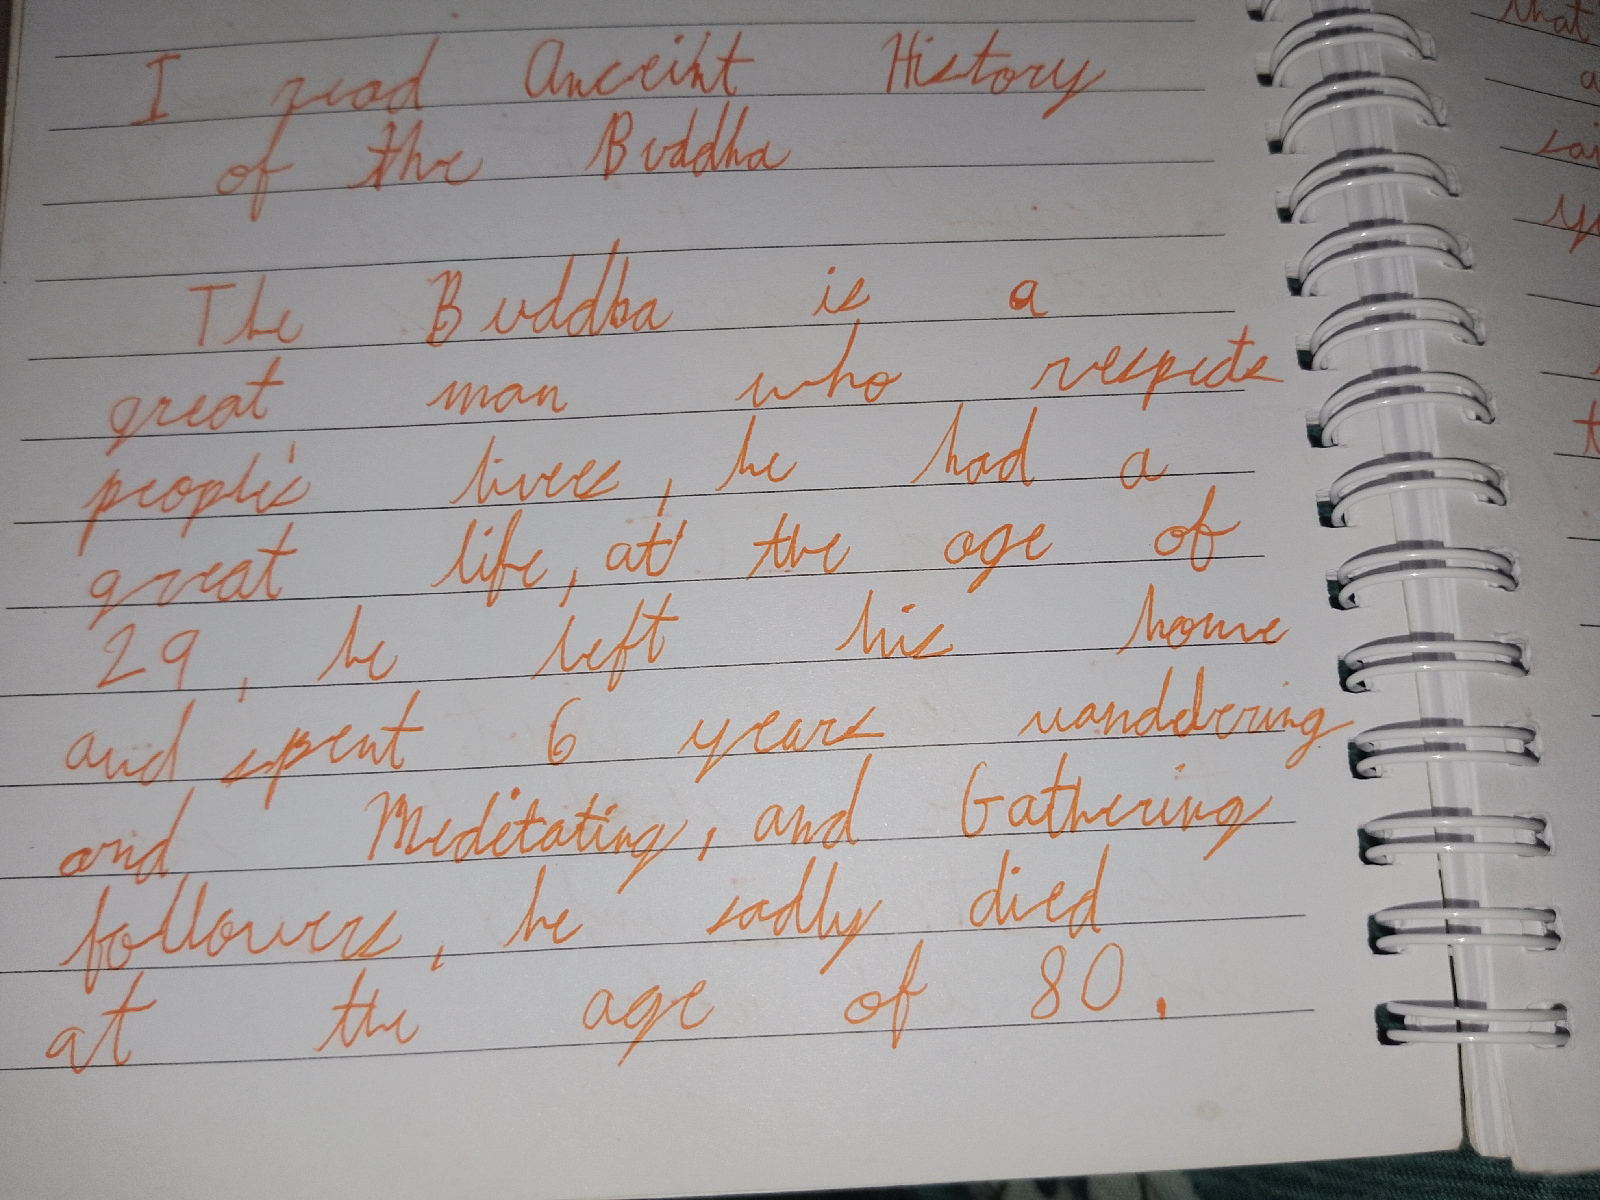 I read Anceint History
of the Buddha
The Buddha is a
great man who respects
people's lives, he had a
great life, at the age of
29, he left his home
and spent 6 years wandering
and Meditating, and Gathering
followers, he sadly died
at the age of 80.
that
a
sai
yo
t